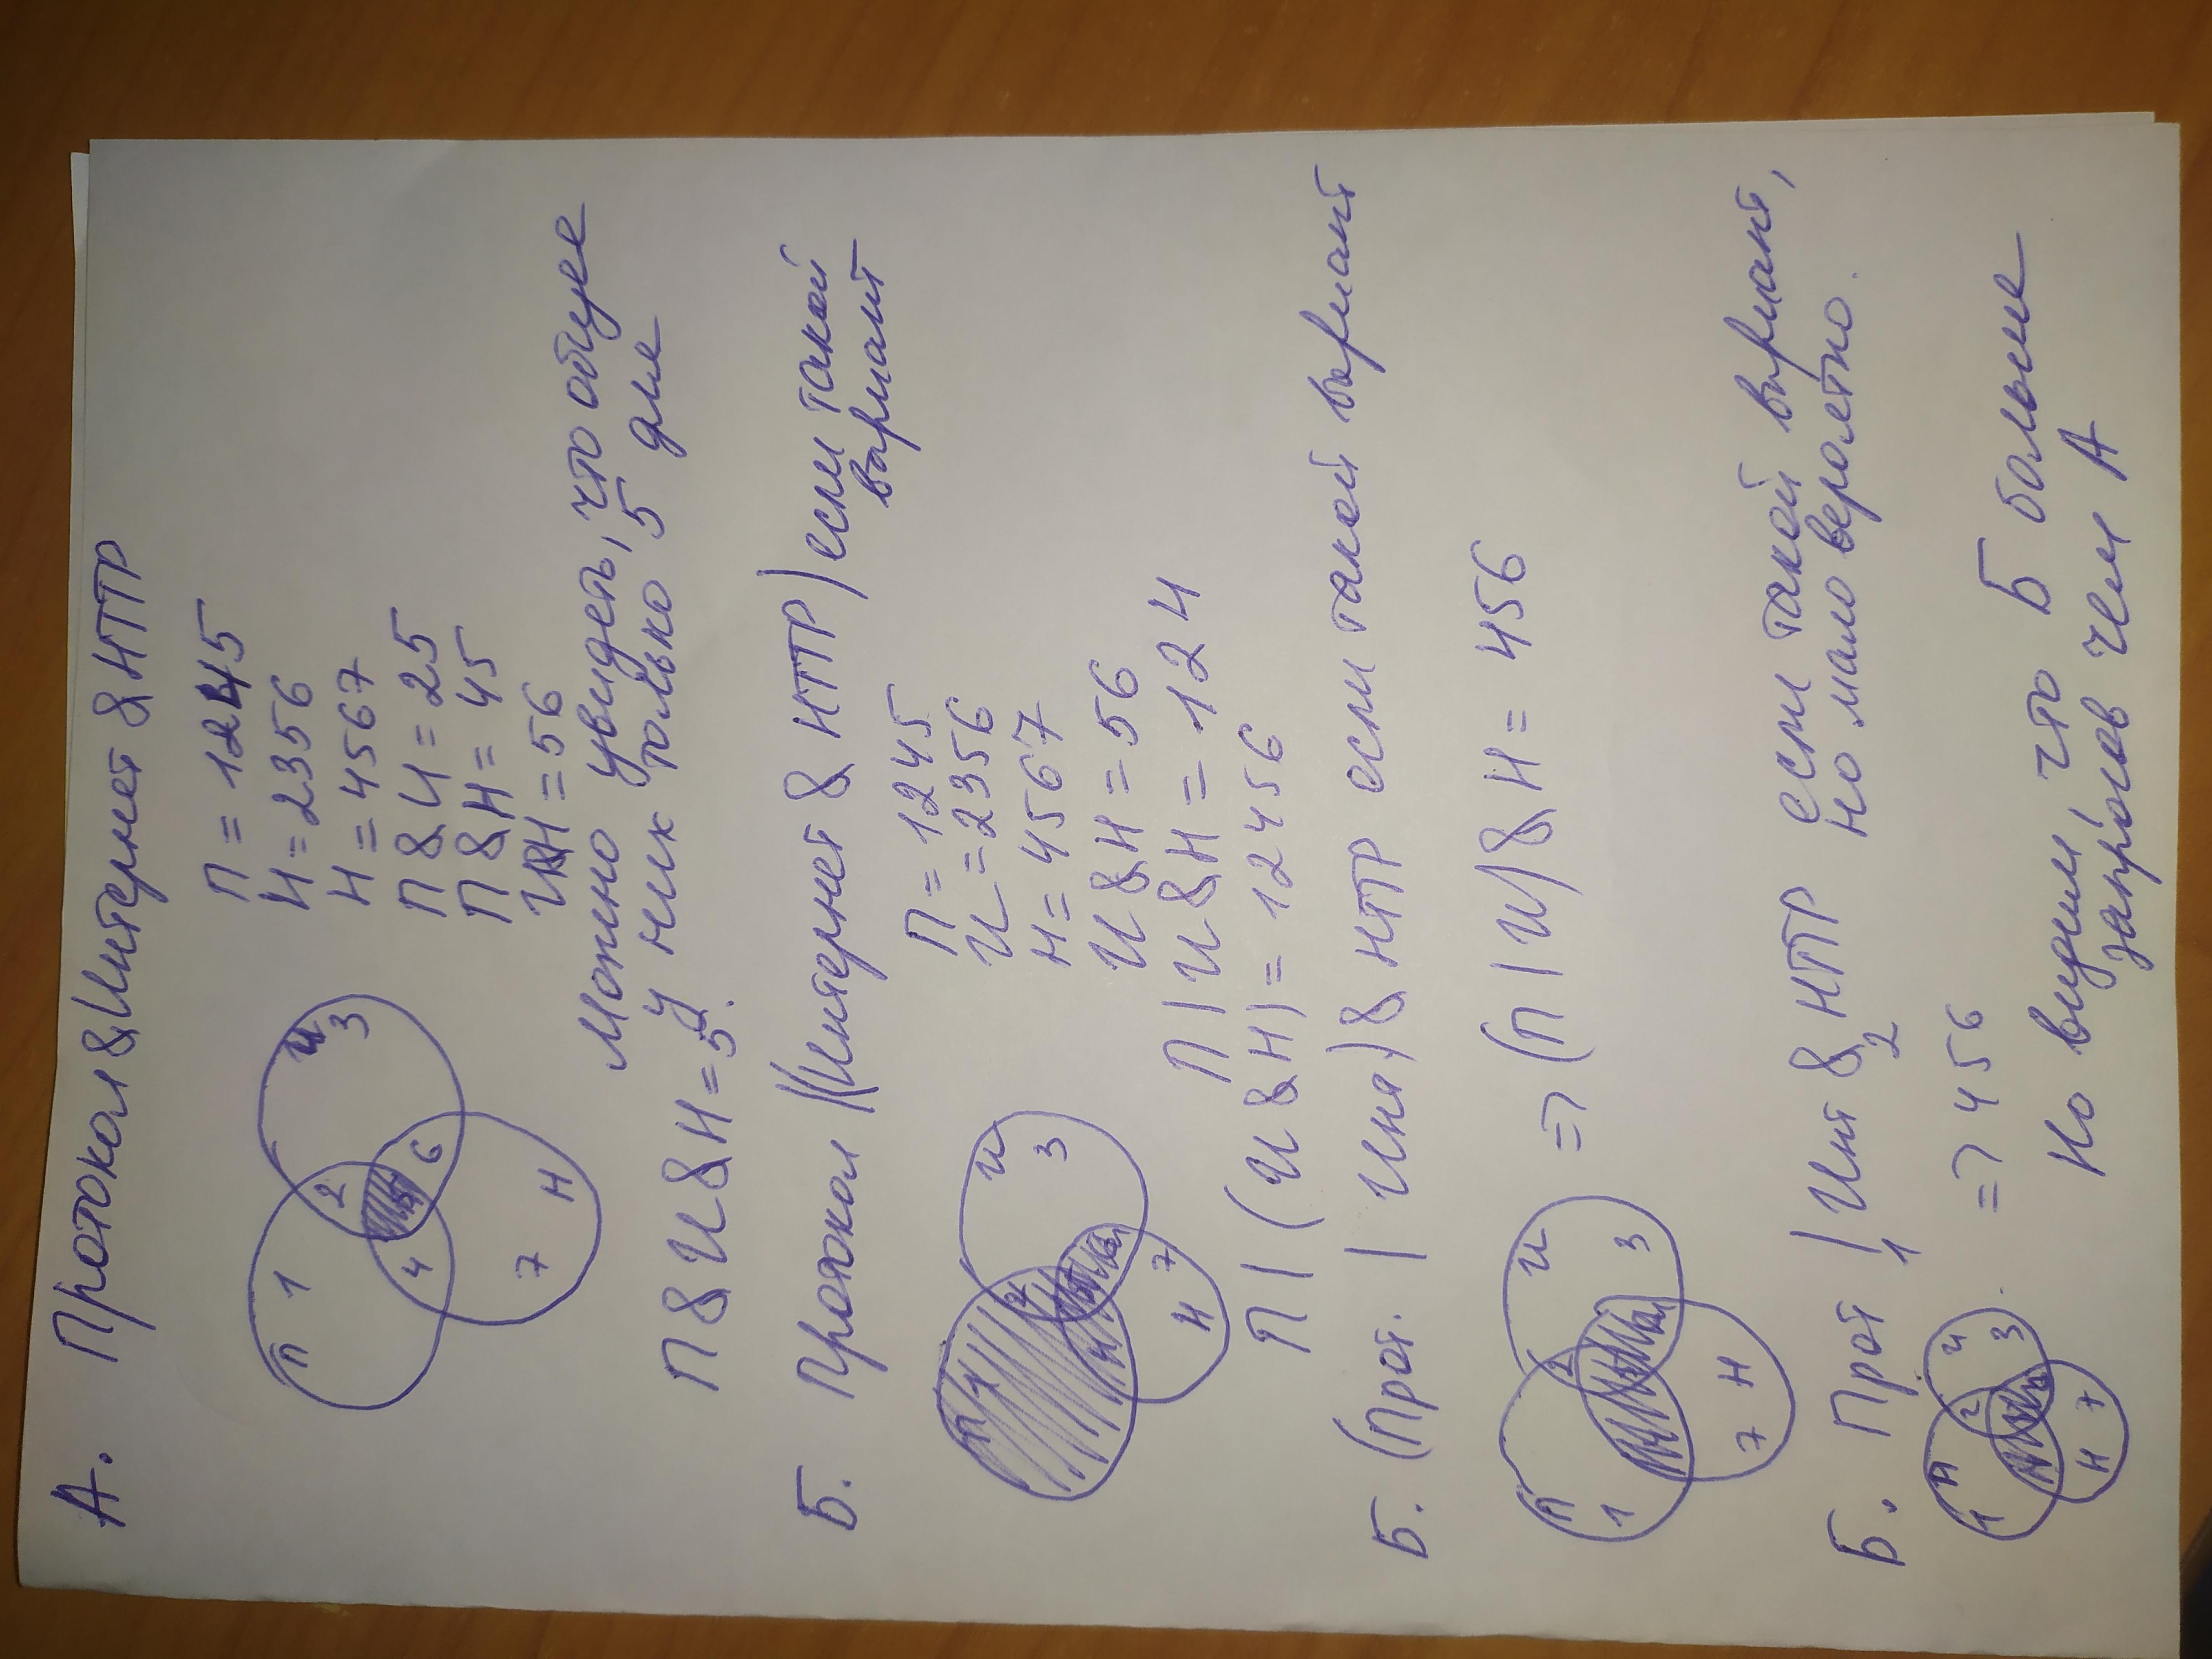 А. Протокол&Интернет&HTTP
П 1
2
И
3
4
5
6
7
Н
П = 1245
И = 2356
Н = 4567
П & И = 25
П & Н = 45
И&Н = 56
Можно увидеть, что общее
у них только 5
П & И & Н = 5
Б. Протокол |(Интернет & HTTP) если такой
вариант
П 1
2
И
3
4
5
6
7
Н
П = 1245
И = 2356
Н = 4567
И & Н = 56
П | И & Н = 124
П | (И & Н) = 12456
Б. (Прот. | Инт) & HTTP если такой вариант
П
1
2
И
3
4
5
6
7
Н
=> (П | И) & Н = 456
Б. Прот | Инт & HTTP если такой вариант,
1 2 но мало вероятно.
1 П
2
И
3
4
5
6
Н 7
=> 456
Но видим что Б больше
запросов чем А